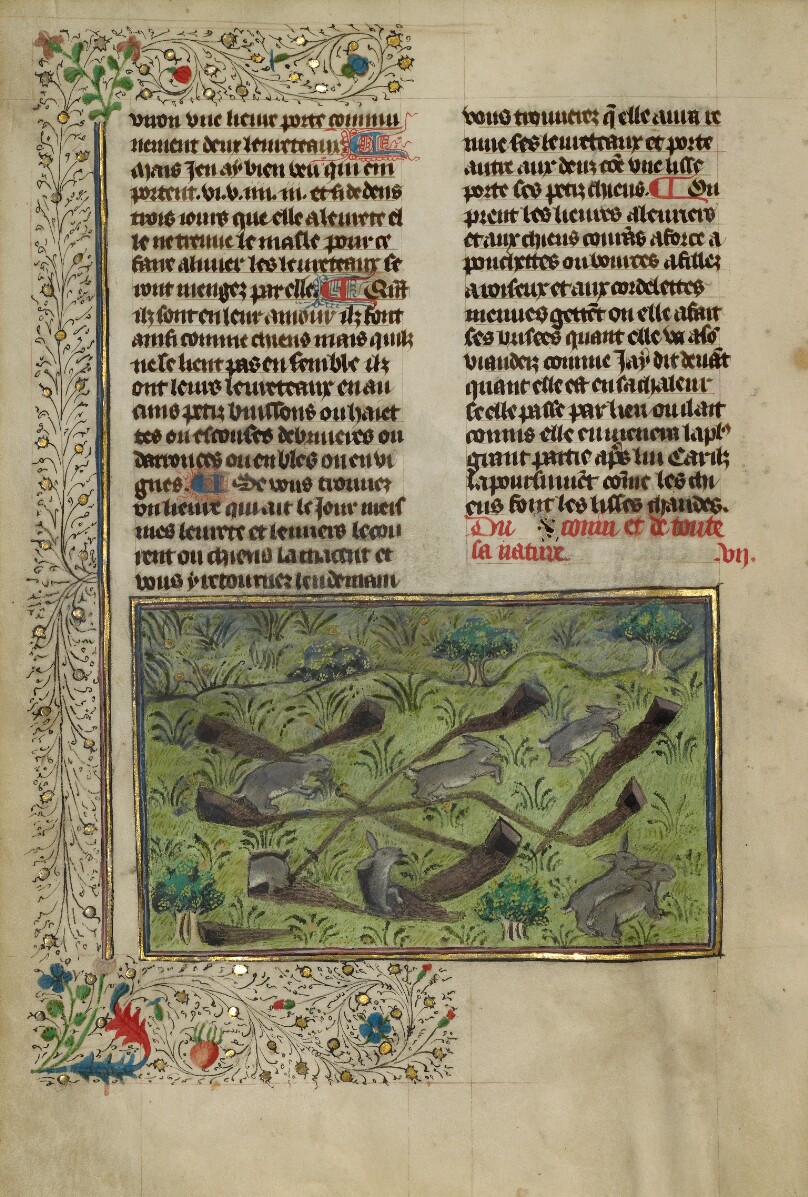 vnon vne lieure porte commu
nement deux leureteaux
Mais Jen ay bien veu qui em
portent .vi. v. iiii. iii. et si dedens
trois iours que elle a leurete el
le ne treuue le masle pour ce
faire aliuier les leureteaux se
ront mengez par elle Quãt
ilz sont en leur amour ilz font
ainsi comme chiens mais quilz
ne se lient pas en semble ilz
ont leurs leureteaux en au
cuns petiz buissons ou haiet
tes ou escouses de bruieres ou
de ronces ou en bles ou en vi
gnes Se vous trouuez
vn lieure qui ait le Jour mes
mes leurete et leuriers le cou
rent ou chiens la chacent et
vous y retournez lendemain
vous trouuerez q̃ elle aura re
mue ses leureteaux et porte
autre aux dens cõe vne lisse
porte ses petiz chiens. On
prent les lieures a leuriers
et aux chiens courãs a force a
pouchettes ou bources a fillez
a roiseux et aux cordelettes
menues gettẽt ou elle a fait
ses brisees quant elle va a sõ
viander comme Jay dit deuãt
quant elle est en sa chaleur
se elle passe par lieu ou il ait
connis elle en menera la pl'
grant partie ap̃s lui Car ilz
la poursuiuẽt cõme les chi
ens font les lisses chaudes.
Du conin et de toute
sa nature. .vij.